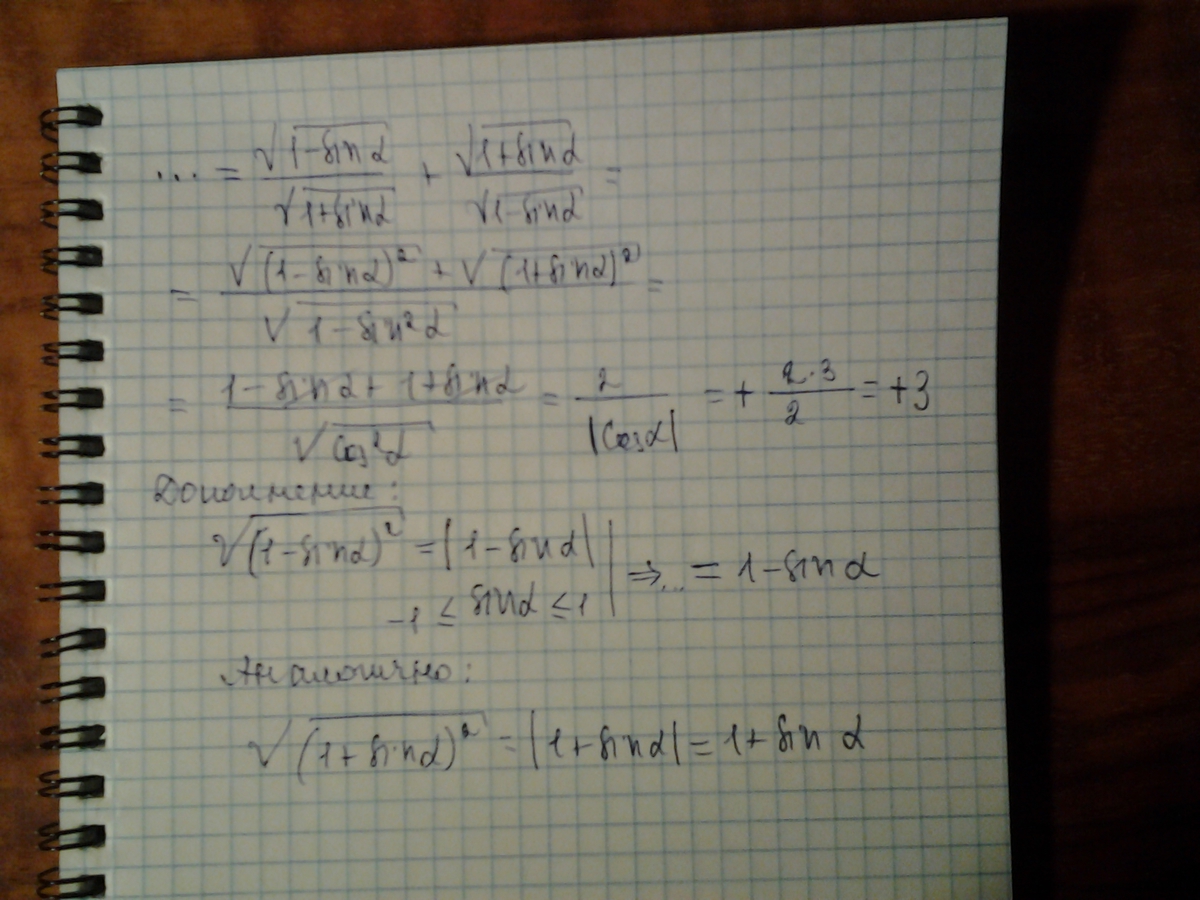 ... = √(1-sinα)/√(1+sinα) + √(1+sinα)/√(1-sinα) =
= (√(1-sinα)² + √(1+sinα)²)/√(1-sin²α) =
= (1-sinα + 1+sinα)/√(cos²α) = 2/|cosα| = + (2·3)/2 = +3
Дополнение:
√(1-sinα)² = |1-sinα|
-1 ≤ sinα ≤ 1 | ⇒ ... = 1-sinα
Аналогично:
√(1+sinα)² = |1+sinα| = 1+sin α